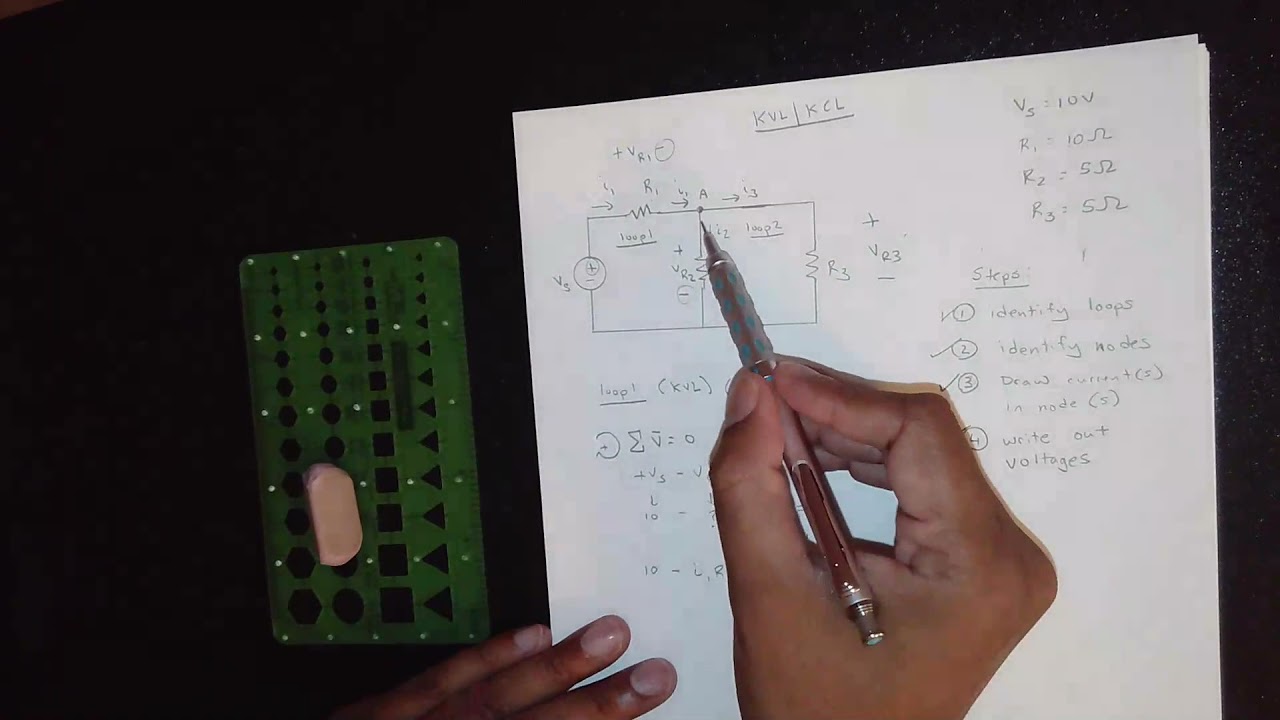 KVL/KCL
Vs = 10V
R1 = 10Ω
R2 = 5Ω
R3 = 5Ω
+ VR1 -
i1 R1 i1 A i3
loop1 i2 loop2
+ VR2 -
Vs + -
R3
+ VR3 -
Steps:
1 identify loops
2 identify nodes
3 Draw current(s)
in node(s)
4 write out
voltages
loop1 (KVL)
+ Σ V = 0
+Vs - V
10 -
10 - i1 R